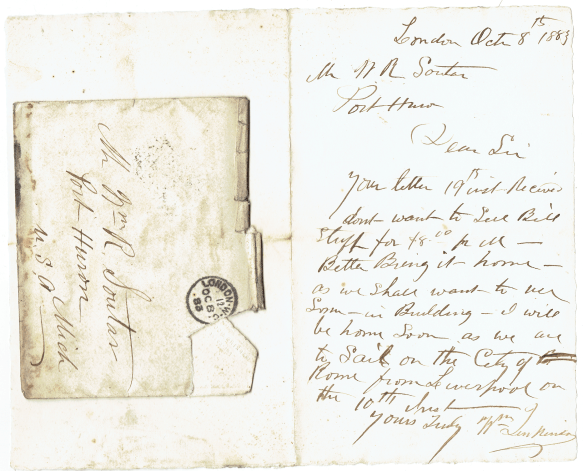 London Oct 8th 1883
Mr W R Soutar
Port Huron
Dear Sir
Your letter 19th inst Received
dont want to Sell Bill
Stuff for $8.00 pr M —
Better Bring it home —
as we Shall want to use
Som — in Building — I will
be home Soon as we are
to Sail on the City of
Rome from Liverpool on
the 10th Inst
Yours Truly Wm
Mr Wm R. Soutar
Port Huron
Mich
U.S.A
LONDON.W.
OC 8
83